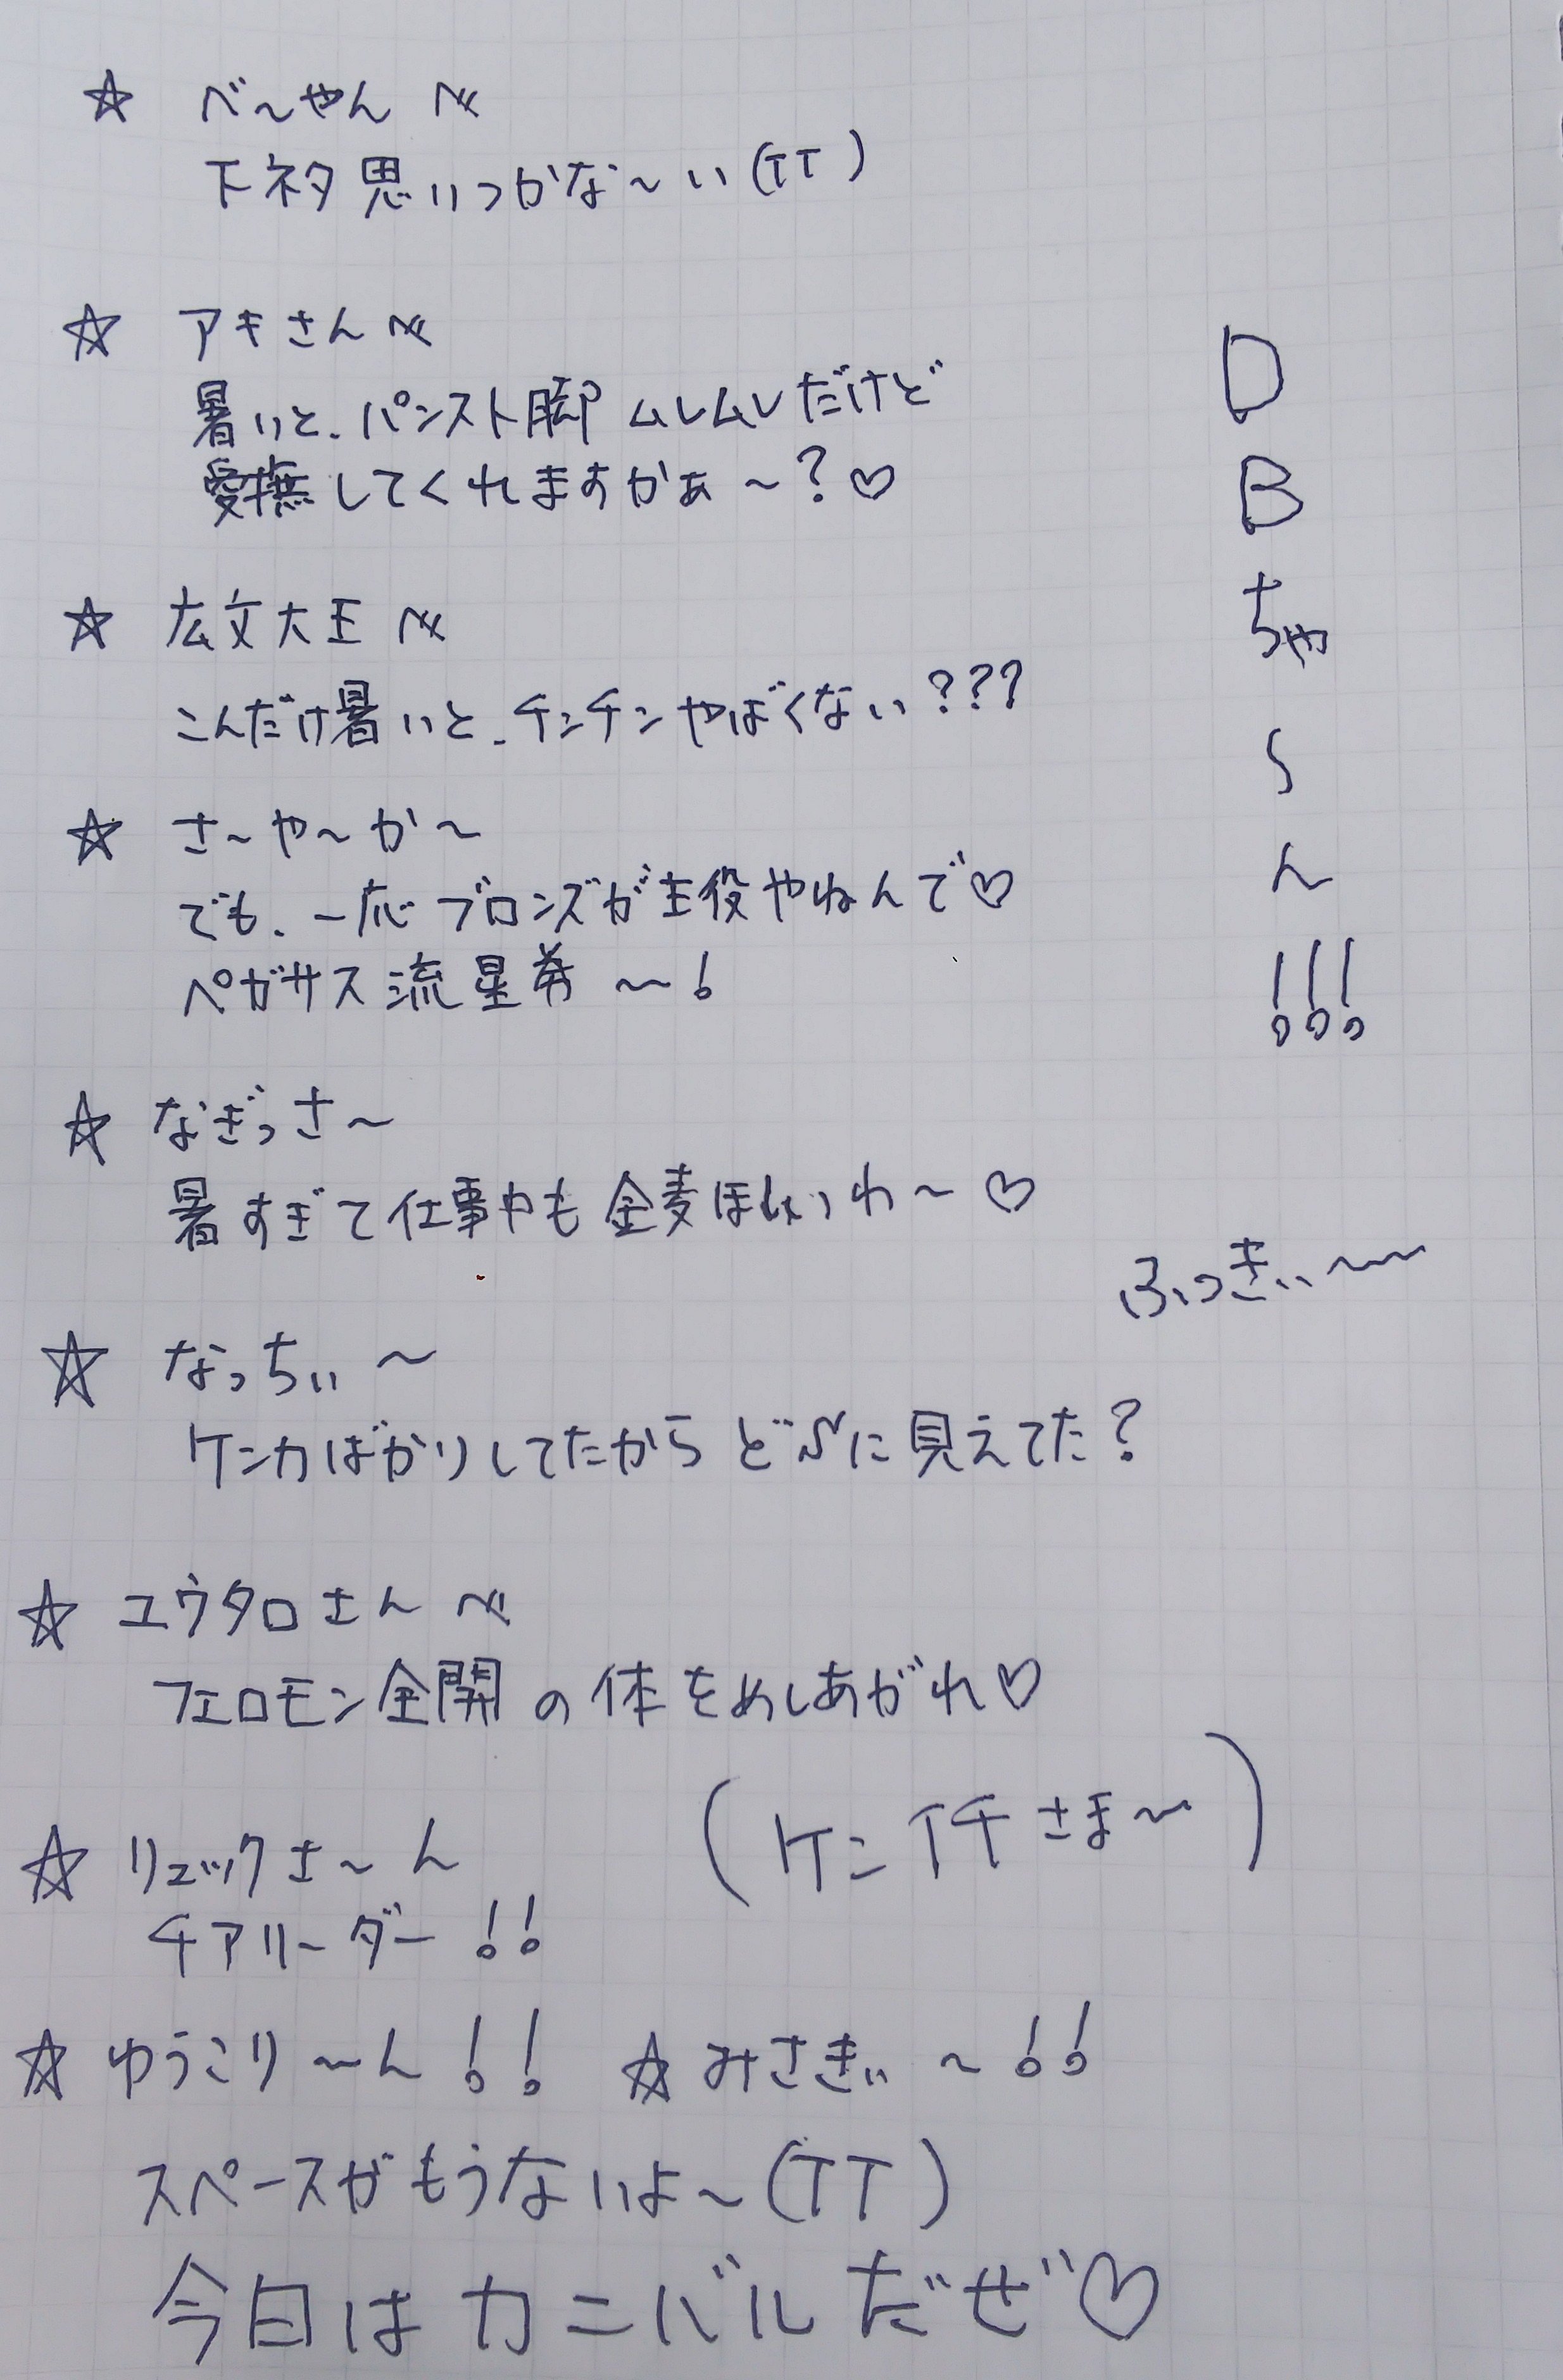 ☆ べ〜やんへ
下ネタ思いつかな〜い(TT)
☆ アキさんへ
暑いと、パンスト脚ムレムレだけど
愛撫してくれますかぁ〜?♡
☆ 広文大王へ
こんだけ暑いと、チンチンやばくない???
☆ さ〜や〜か〜
でも、一応ブロンズが主役やねんで♡
ペガサス流星拳〜!
☆ なぎっさ〜
暑すぎて仕事中も金麦ほしいわ〜♡
☆ なっちぃ〜
ケンカばかりしてたから どんなに見えてた?
☆ ユウタロさんへ
フェロモン全開の体をめしあがれ♡
☆ リュックさ〜ん
チアリーダー!!
(ケンイチさま〜)
☆ ゆうこり〜ん!! ☆ みさきぃ〜!!
スペースがもうないよ〜(TT)
今日はカニバルだぜ♡
DBちゃ〜ん!!!
ふっきぃ〜〜